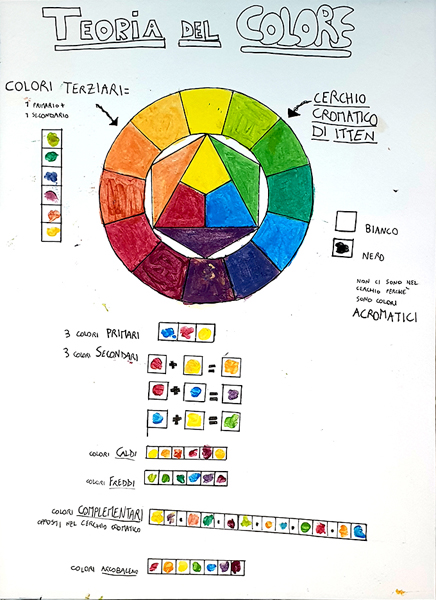 TEORIA DEL COLORE
COLORI TERZIARI =
1 PRIMARIO +
1 SECONDARIO
CERCHIO
CROMATICO
DI ITTEN
BIANCO
NERO
NON CI SONO NEL
CERCHIO PERCHÈ
SONO COLORI
ACROMATICI
3 COLORI PRIMARI
3 COLORI SECONDARI
+ =
+ =
+ =
COLORI CALDI
COLORI FREDDI
COLORI COMPLEMENTARI
OPPOSTI NEL CERCHIO CROMATICO
COLORI ARCOBALENO